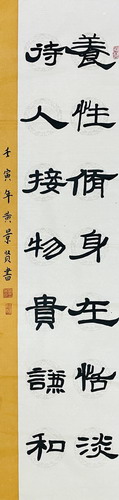 養性脩身在恬淡
待人接物貴謙和
壬寅年黃景賀書